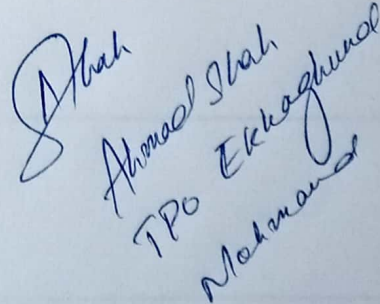 AShah
Ahmad Shah
TPO Ekkaghund
Mohmand